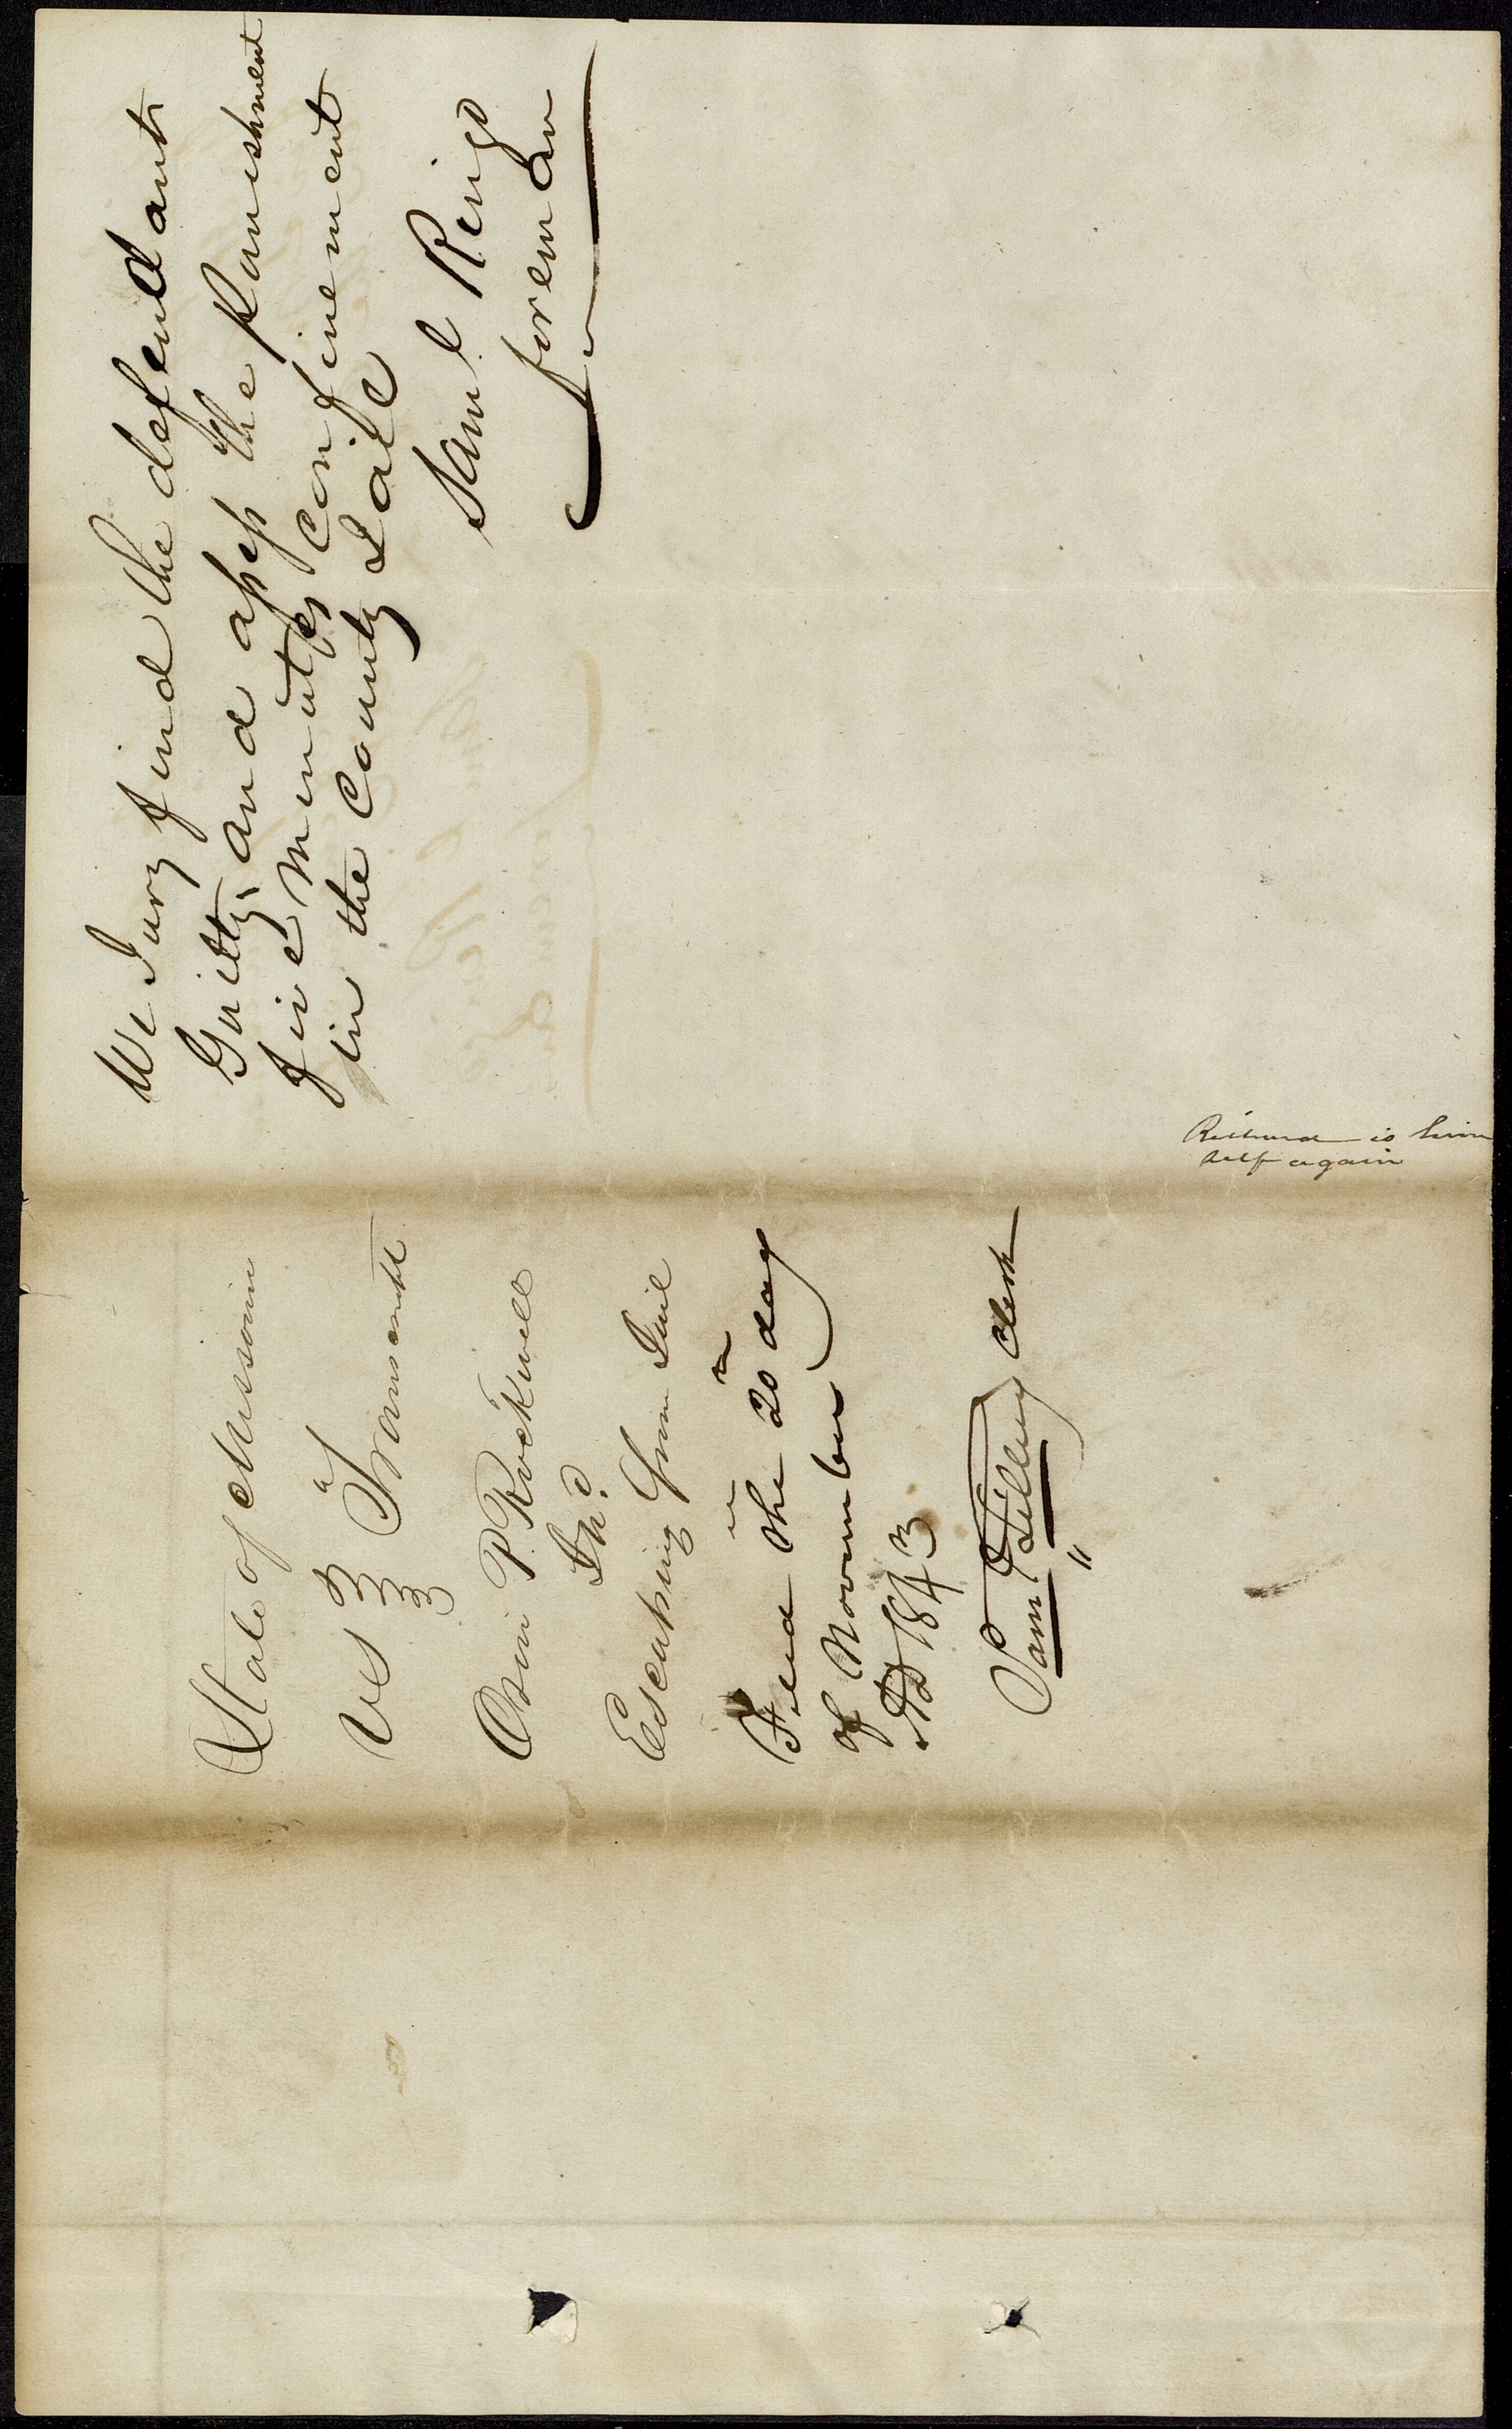 We Jury find the defendant
Guilty, and assess the Punishment
five minutes confinement
in the County Jale
Saml Ringo
foreman
Richard is him
self again
State of Missouri
vs Transcript
Orin P. Rockwell
Escaping from Jail
Filed the 20 day
of November
AD 1843
Saml Tillery Clerk